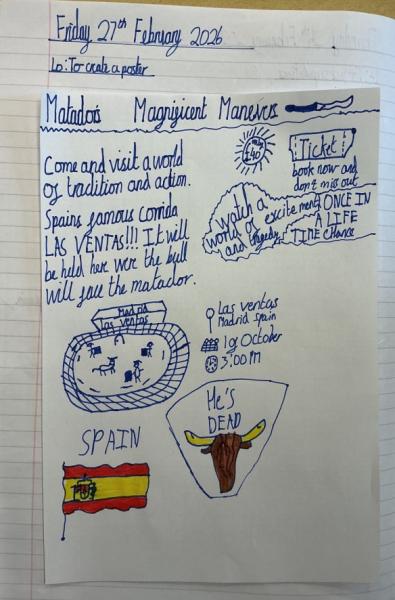 Friday 27th February 2026
Lo: To create a poster
Matadors Magnificent Manevers
Come and visit a world
of tradition and action.
Spains famous corrida
LAS VENTAS!!! It will
be held here were the bull
will face the matador.
only
£40
Ticket
book now and
don't miss out
Watch a
world of excitement
and tragedy
ONCE IN
A LIFE
TIME chance
Madrid
las ventas
las ventas
Madrid Spain
19 October
3:00 PM
He's
DEAD
SPAIN